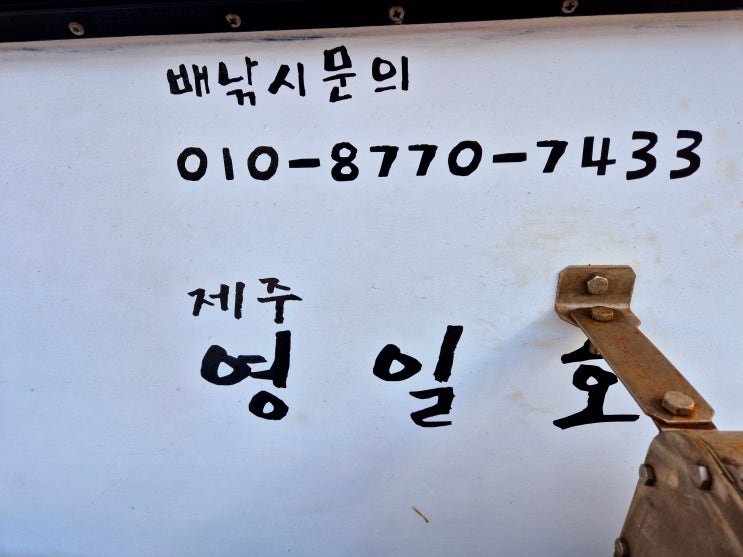 배낚시문의
010-8770-7433
제주
영일호